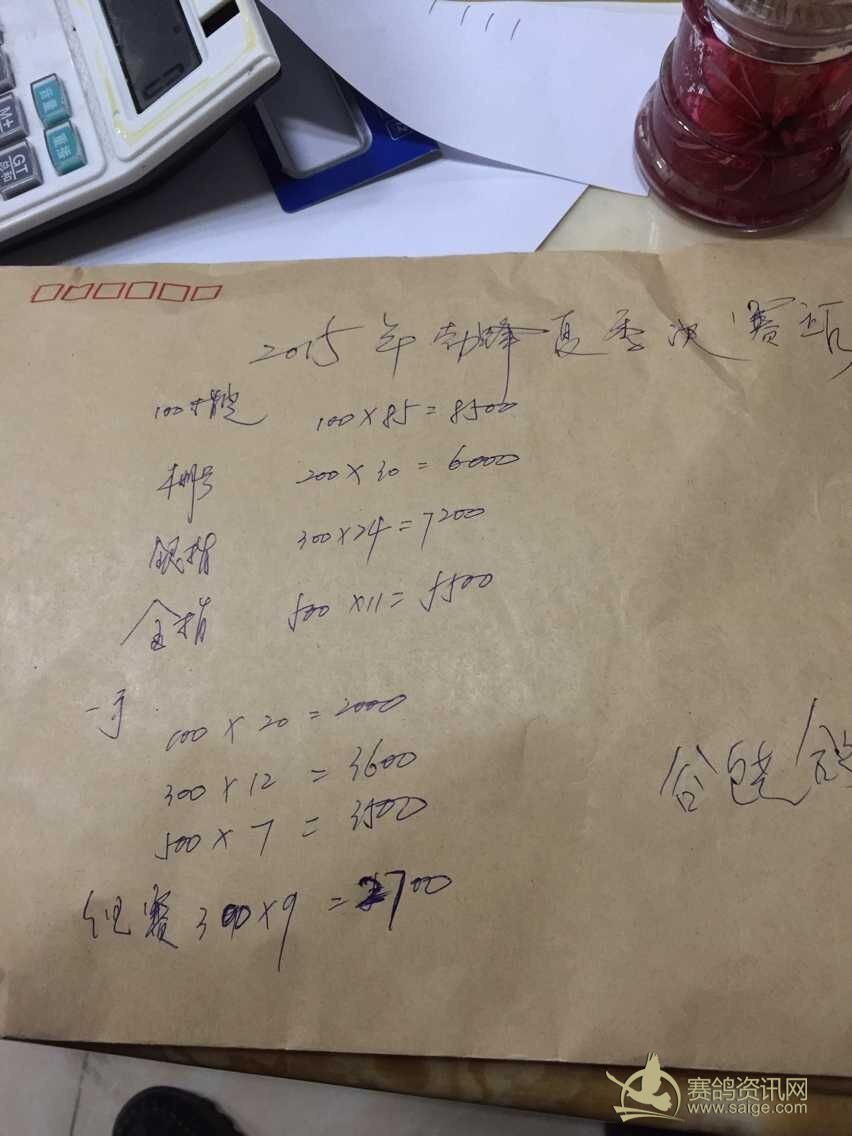 M+
GT
总和
2015年 勃峰夏季决赛
100 100×85=8500
200×30=6000
银指 300×24=7200
金指 500×11=5500
一
100×20=2000
300×12=3600
500×7=3500
组赛 300×9=2700
赛鸽资讯网
www.saige.com